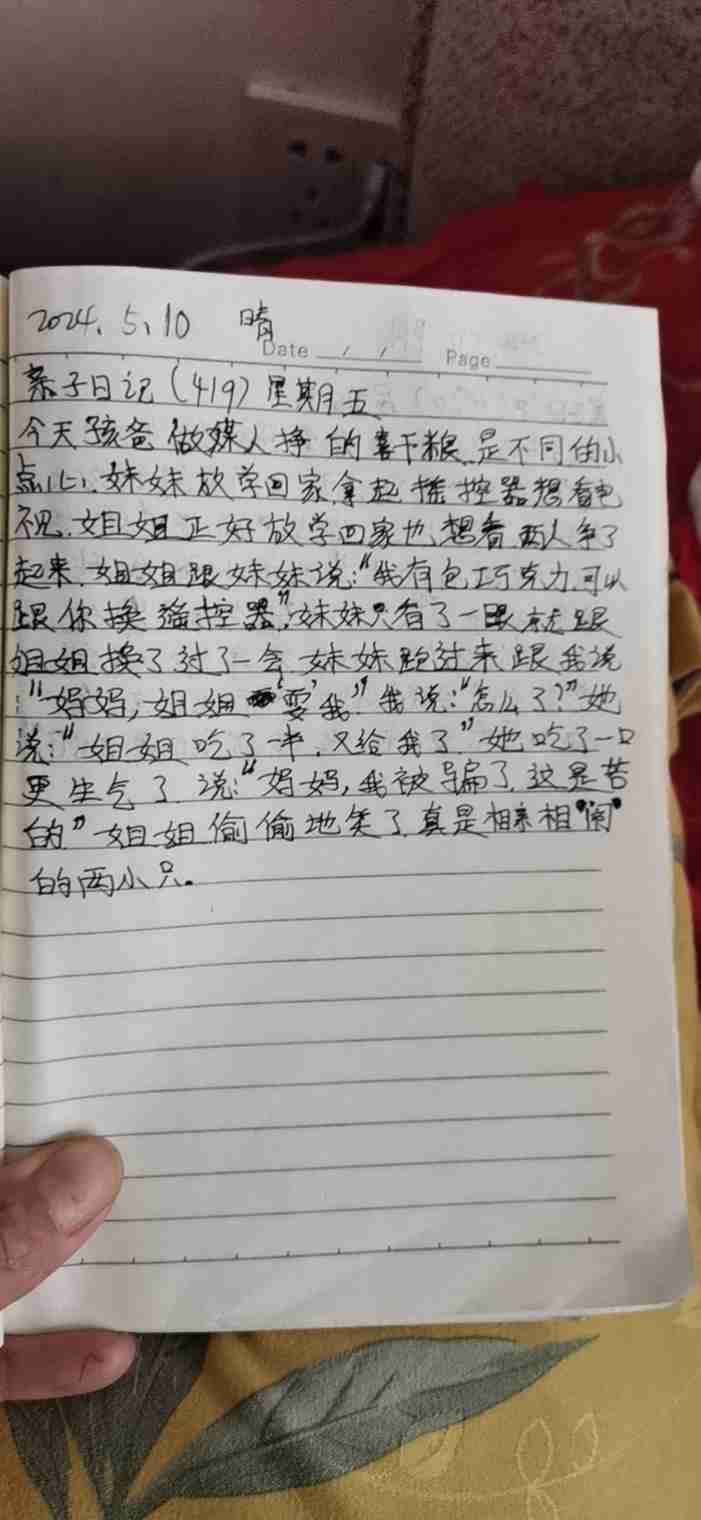 2024.5.10 晴
Date / / Page
亲子日记(419)星期五
今天孩爸做媒人挣的喜干粮.是不同的小
点心.妹妹放学回家拿起摇控器想看电
视.姐姐正好放学回家也想看.两人争了
起来.姐姐跟妹妹说:“我有包巧克力.可以
跟你换遥控器”.妹妹只看了一眼就跟
姐姐换了.过了一会.妹妹跑过来跟我说
“妈妈,姐姐‘耍’我”我说:“怎么了?”她
说:“姐姐吃了一半.又给我了”她吃了一口
更生气了.说:“妈妈,我被骗了.这是苦
的”姐姐偷偷地笑了.真是相亲相“闹”
的两小只。